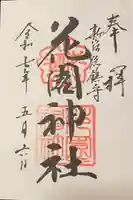 奉拝
新宿総鎮守
花園神社
令和七年五月六日